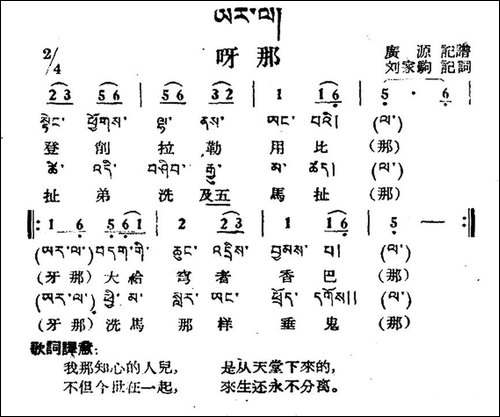 ཨར་ལ།
呀那
2/4
廣源 記譜
刘家駒 記詞
2 3 5 6 | 5 6 3 2 | 1 1 6 | 5 · 6 |
སྟེང་ ཕྱོགས་ ལྷ་ ནས་ ཨང་ བའི། (ལ་)
登 削 拉 勒 用 比 (那)
ཚེ་ འདི་ བཤིབ་ རྒྱུ་ མ་ ཚད། (ལ་)
扯 弟 洗 及五 馬 扯 (那)
‖: 1 6 5 6 1 | 2 2 3 | 1 1 6 | 5 — :‖
(ཨར་ལ་) བདག་གི་ ཆུང་ འདྲིས་ བྱམས་ པ། (ལ་)
(牙那) 大給 穹 者 香 巴 (那)
(ཨར་ལ་) ཕྱི་མ་ སླར་ ཨང་ ཕྲོད་ དགོས།། (ལ་)
(牙那) 洗馬 那 样 垂 鬼 (那)
歌詞譯意:
我那知心的人兒, 是从天堂下來的,
不但今世在一起, 來生还永不分离。